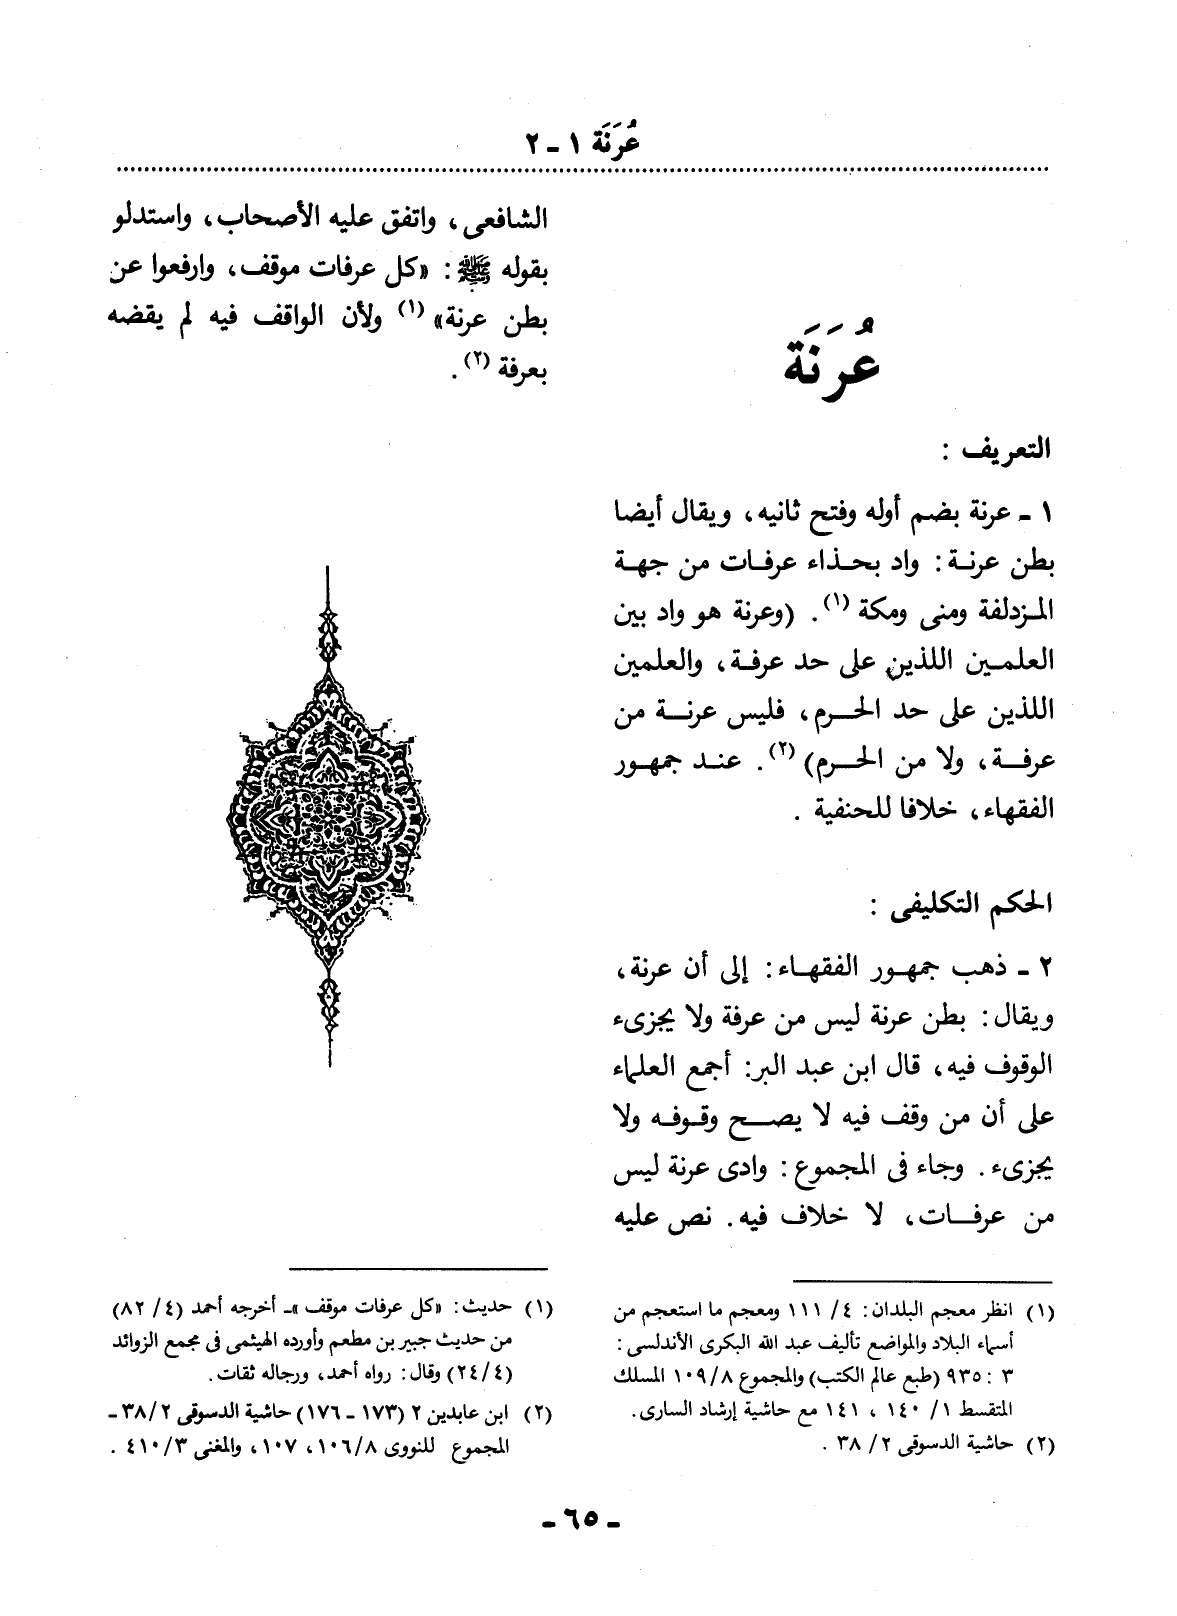 عُرَنَة ١ - ٢
عُرَنَة
التعريف :
١ - عرنة بضم أوله وفتح ثانيه، ويقال أيضا
بطن عرنة: واد بحذاء عرفات من جهة
المزدلفة ومنى ومكة (١). (وعرنة هو واد بين
العلمين اللذين على حد عرفة، والعلمين
اللذين على حد الحرم، فليس عرنة من
عرفة، ولا من الحرم) (٢). عند جمهور
الفقهاء، خلافا للحنفية .
الحكم التكليفى :
٢ - ذهب جمهور الفقهاء: إلى أن عرنة،
ويقال: بطن عرنة ليس من عرفة ولا يجزىء
الوقوف فيه، قال ابن عبد البر: أجمع العلماء
على أن من وقف فيه لا يصح وقوفه ولا
يجزىء. وجاء فى المجموع: وادى عرنة ليس
من عرفات، لا خلاف فيه. نص عليه
(١) انظر معجم البلدان: ٤/ ١١١ ومعجم ما استعجم من
أسماء البلاد والمواضع تأليف عبد الله البكرى الأندلسى:
٣ : ٩٣٥ (طبع عالم الكتب) والمجموع ١٠٩/٨ المسلك
المتقسط ١/ ١٤٠ ، ١٤١ مع حاشية إرشاد السارى.
(٢) حاشية الدسوقى ٢/ ٣٨ .
الشافعى، واتفق عليه الأصحاب، واستدلو
بقوله ﷺ: «كل عرفات موقف، وارفعوا عن
بطن عرنة» (١) ولأن الواقف فيه لم يقضه
بعرفة (٢).
(١) حديث: «كل عرفات موقف »ـ أخرجه أحمد (٤/ ٨٢)
من حديث جبير بن مطعم وأورده الهيثمى فى مجمع الزوائد
(٢٤/٤) وقال: رواه أحمد، ورجاله ثقات.
(٢) ابن عابدين ٢ (١٧٣ - ١٧٦) حاشية الدسوقى ٣٨/٢ -
المجموع للنووى ١٠٦/٨، ١٠٧، والمغنى ٤١٠/٣ .
- ٦٥ -